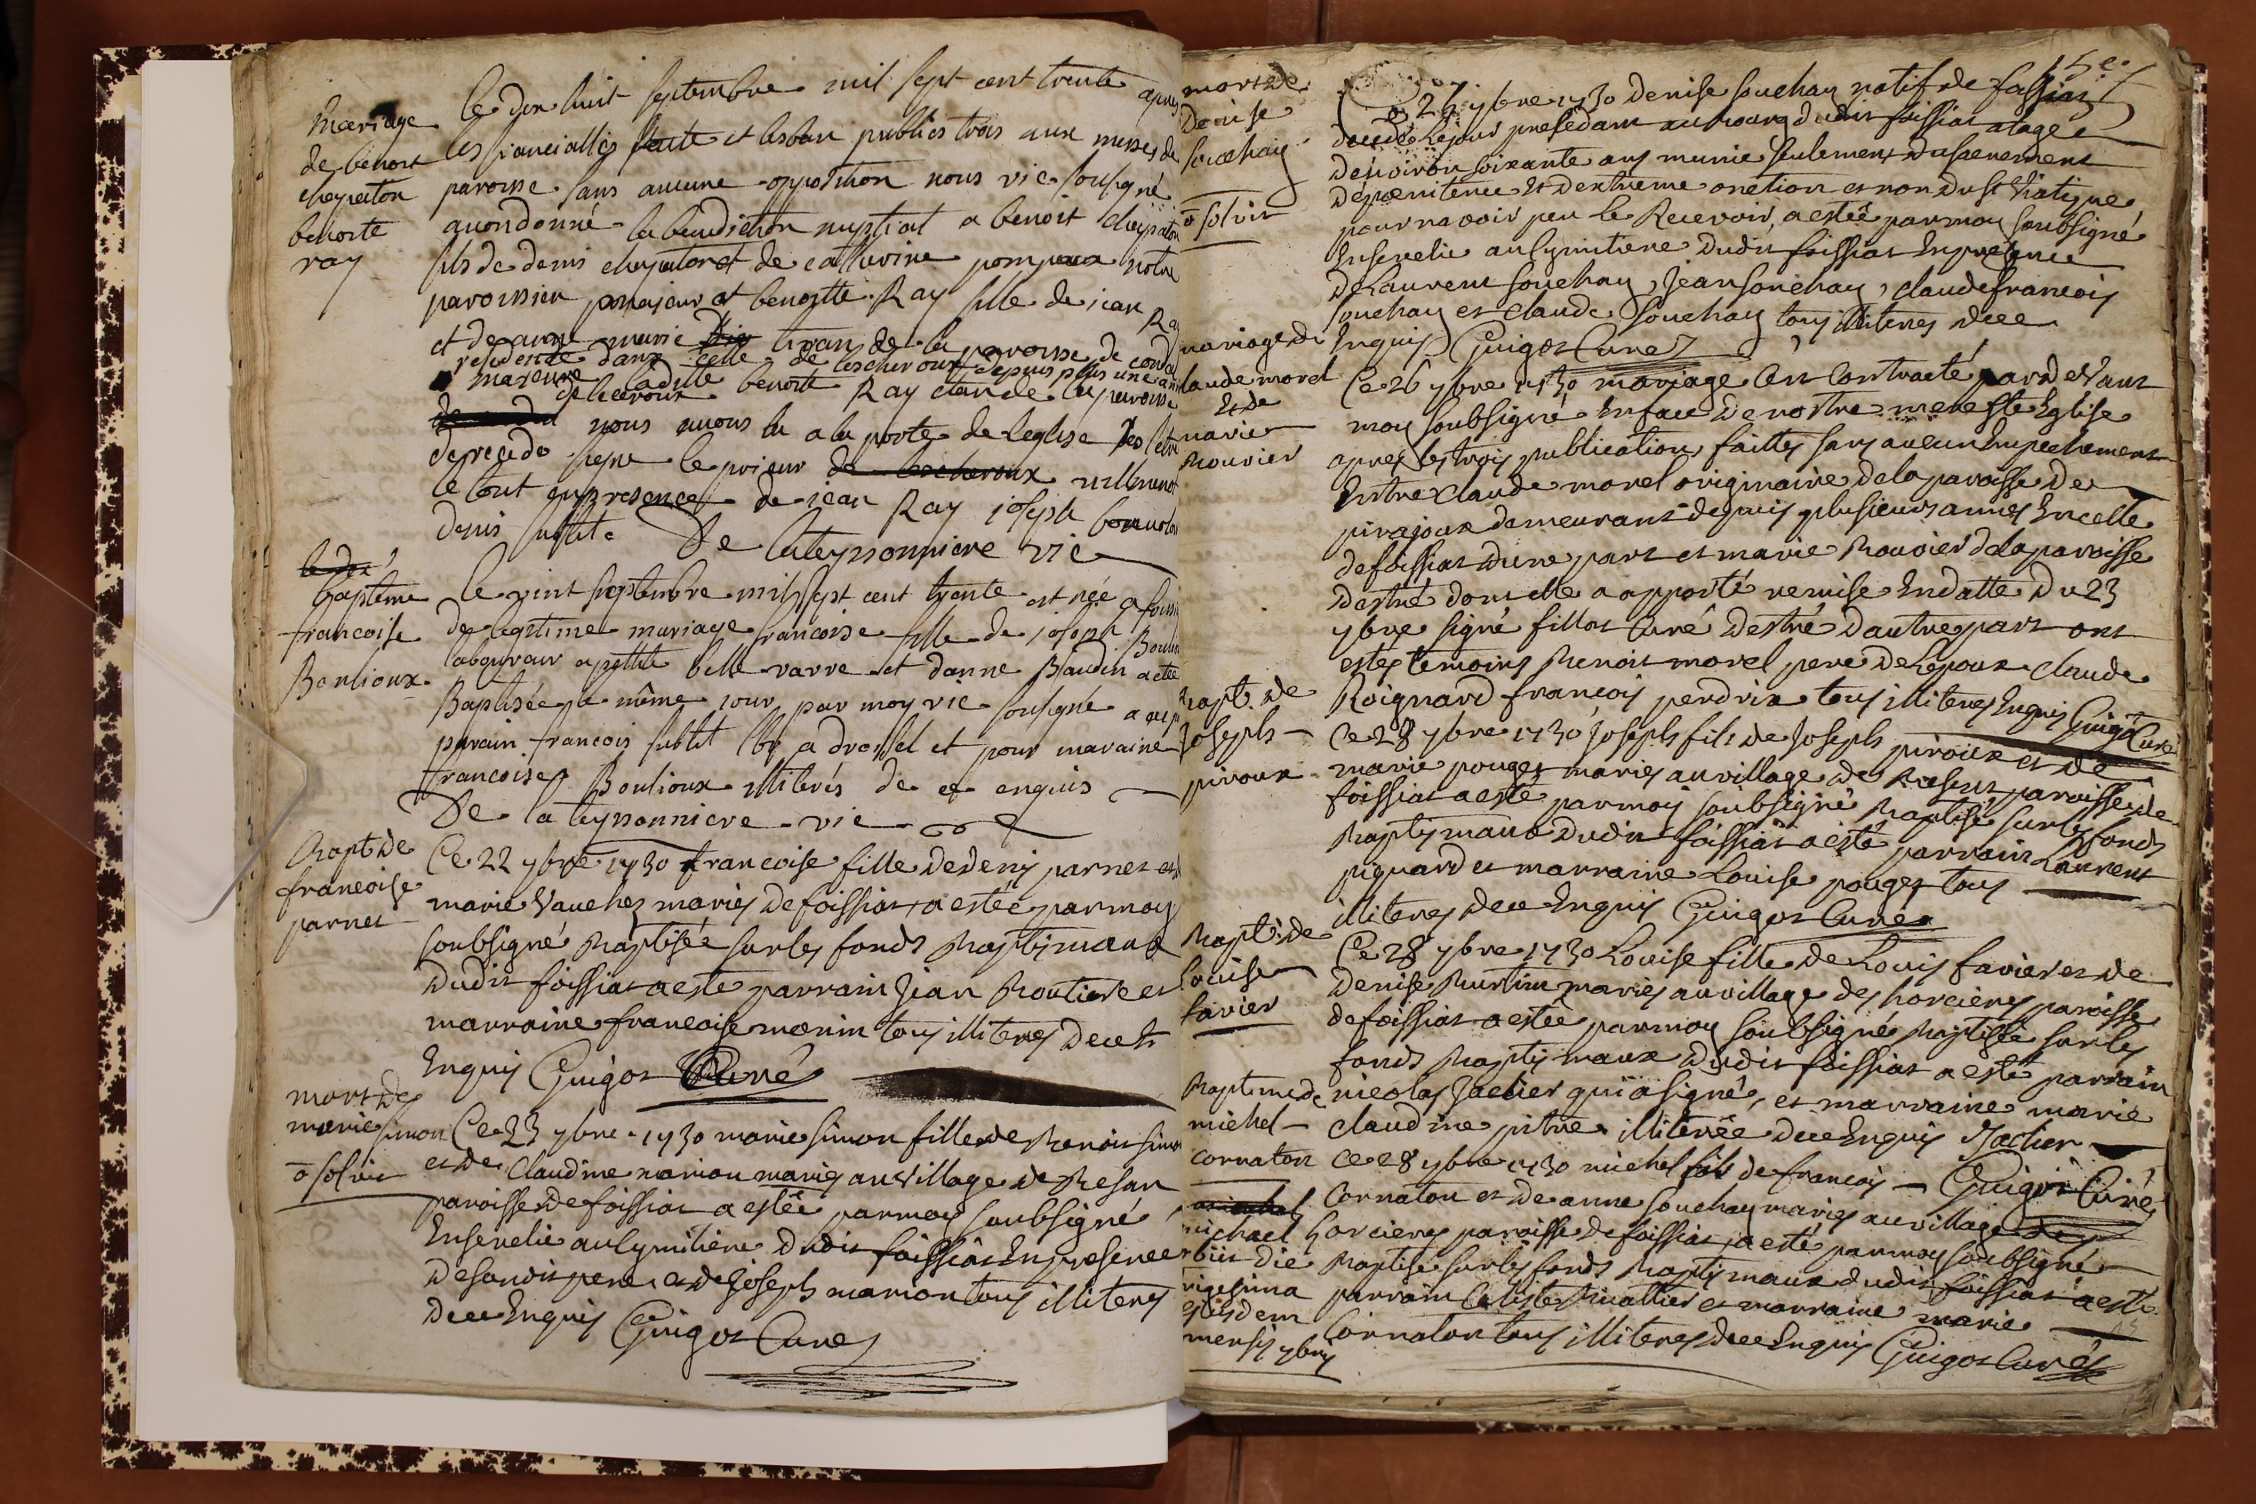 mariage
de benoit
cheynaton
benoite
ray
le dix huit septembre mil sept cent trente apres
les fiancialles faite et les ban publies trois aux messes de
paroisse sans aucune opposition nous vic. sousigné
avons donné la benediction nuptial a benoit cheynaton
fils de denis cheynaton et de catherine pompaux notre
paroissien majeur et benoitte Ray fille de jean Ray
et de anne marie tivan de la paroisse de
residente dans celle de lescheroux depuis plus une
de ladite benoite Ray de la paroisse
nous avons lu a la porte de leglise
signé le prieur de lescheroux
le tout en presence de jean Ray joseph
denis sublit De lateyssonniere vic
bapteme
francoise
Boulioux
le vint septembre mil sept cent trente est née a
de legitime mariage francoise fille de joseph
laboureur a petite belle varre et danne Baudin a eté
Baptisée le même jour par moy vic sousigné a
parain francois sublit et pour maraine
francoise Boulioux illiterés de ce enquis
De la teyssonniere vic
Bapt de
francoise
parnet
Ce 22 7bre 1730 francoise fille de deny parnet et
marie Vauchez mariés de foissiat a estée par moy
soubsigné Baptisée sur les fonds Baptismaux
dudit foissiat a esté parrain Jean Boutier et
marraine francoise morin tous illiterés de ce
Enquis Guigot Curé
mort de
marie simon
o solvit
Ce 23 7bre 1730 marie simon fille de Benoit simon
et de Claudine marion mariés au village de Besan
paroisse de foissiat a estée par moy soubsigné
Ensevelie au Cymitiere dudit foissiat En presence
de son dit pere et de Joseph marion tous illiterés
de ce Enquis Guigot Curé
mort de
denise
souchay
o solvit
15e
Ce 24 7bre 1730 denise souchay natif de foissiat
decedé le jour precedant au bourg dudit foissiat agée
denviron soixante ans munie seulement du sacrement
de penitence et dextreme onction et non du St Viatique
pour navoir peu le Recevoir, a estée par moy soubsigné
Ensevelie au Cymitiere dudit foissiat En presence
de Laurent souchay, Jean souchay, claude francois
souchay et claude souchay tous illiterés de ce
Enquis Guigot Curé
mariage de
claude morel
Et de
marie
Bouvier
Ce 26 7bre 1730 mariage a Esté Contracté par devant
moy soubsigné En face de nostre mere Ste Eglise
apres les trois publications faittes sans aucun Empechement
Entre Claude morel originaire de la paroisse de
pirajoux demeurant depuis plusieurs années En celle
de foissiat dune part et marie Bouvier de la paroisse
destré dont elle a apporté remise En datte du 23
7bre signé fillot Curé destré dautre part ont
estés temoins Benoit morel pere de Lepoux claude
Roignard francois perdrix tous illiterés Enquis Guigot Curé
Bapt. de
Joseph
piroux
Ce 28 7bre 1730 Joseph fils de Joseph piroux et de
marie pouget mariés au village de Besan paroisse de
foissiat a esté par moy soubsigné Baptisé sur les fonds
Baptismaux dudit foissiat a esté parrain Laurent
piguard et marraine Louise pouget tous
illiterés de ce Enquis Guigot Curé
Bapt. de
Louise
favier
Ce 28 7bre 1730 Louise fille de Louis favier et de
denise Burtin mariés au village des horcieres paroisse
de foissiat a estée par moy soubsigné Baptisée sur les
fonds Baptismaux dudit foissiat a esté parrain
nicolas Jaclier qui a signé, et marraine marie
claudine pitre illiterée de ce Enquis Jaclier
Guigot Curé
Bapteme de
michel
cornaton
michael
obiit die
vigesima
ejusdem
mensis 7bris
Ce 28 7bre 1730 michel fils de francois
Cornaton et de anne souchay mariés au village des
horcieres paroisse de foissiat a esté par moy soubsigné
Baptisé sur les fonds Baptismaux dudit foissiat a esté
parrain Calixte Buattier et marraine marie
Cornaton tous illiterés de ce Enquis Guigot Curé